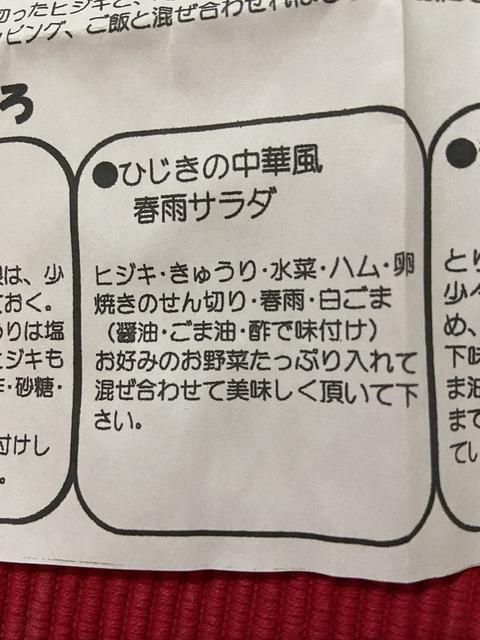 切ったヒジキと、
ッピング、ご飯と混ぜ合わせれば
ろ
●ひじきの中華風
春雨サラダ
ヒジキ・きゅうり・水菜・ハム・卵
焼きのせん切り・春雨・白ごま
（醤油・ごま油・酢で味付け）
お好みのお野菜たっぷり入れて
混ぜ合わせて美味しく頂いて下
さい。
は、少
ておく。
うりは塩
ヒジキも
・砂糖・
付けし
。
●
とり
少々
め、
下味
ま油
まで
てい